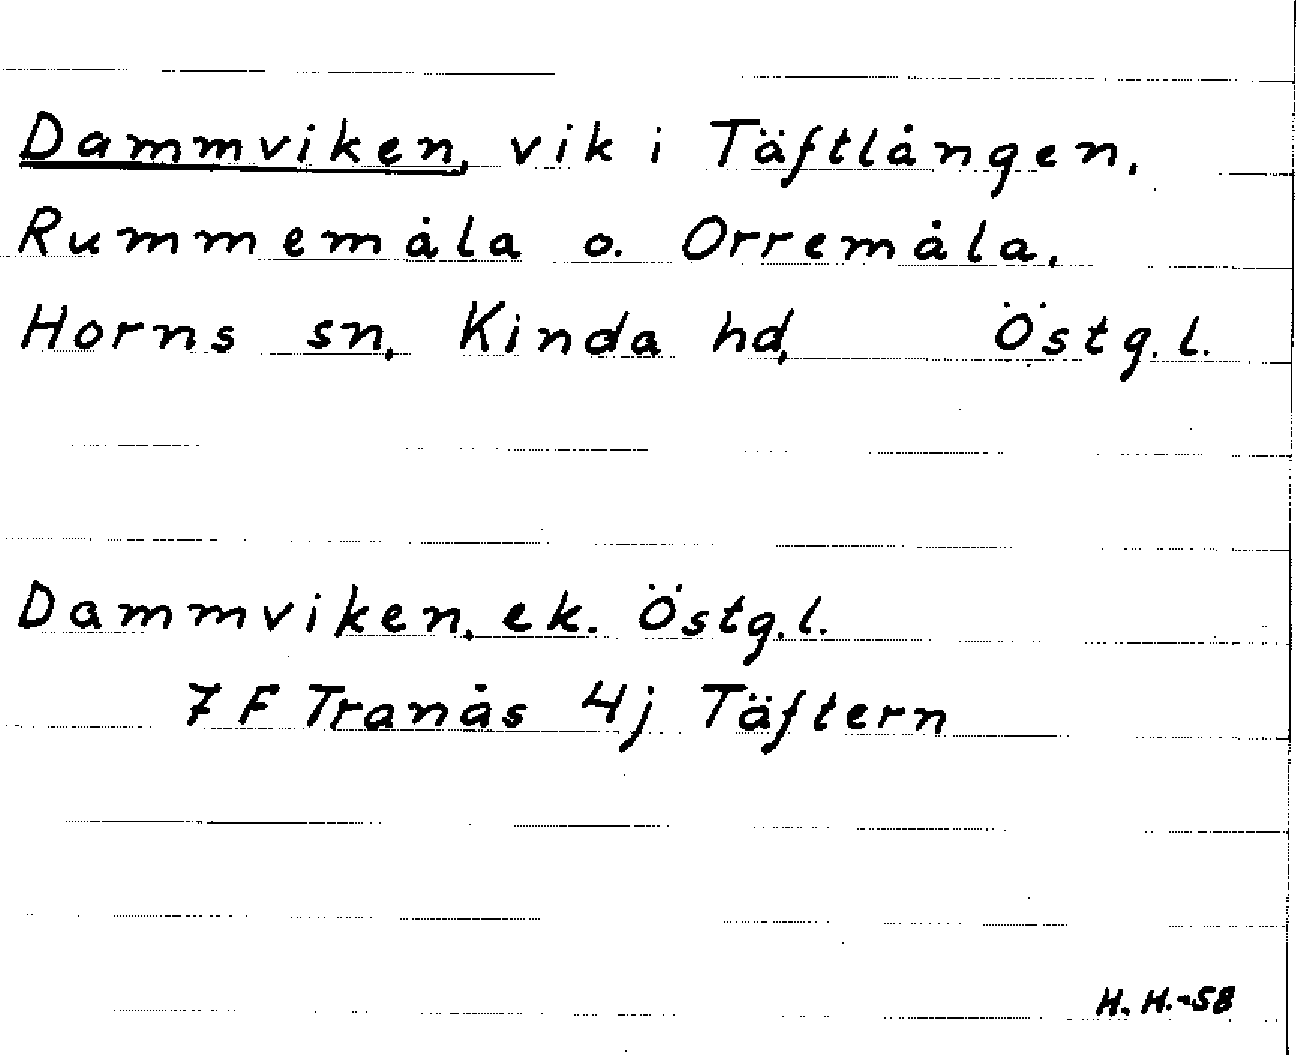 Dammviken, vik i Täftlången,
Rummemåla o. Orremåla,
Horns sn, Kinda hd, Östg.l.
Dammviken, ek. Östg.l.
7 F Tranås 4j Täftern
H. H.-58